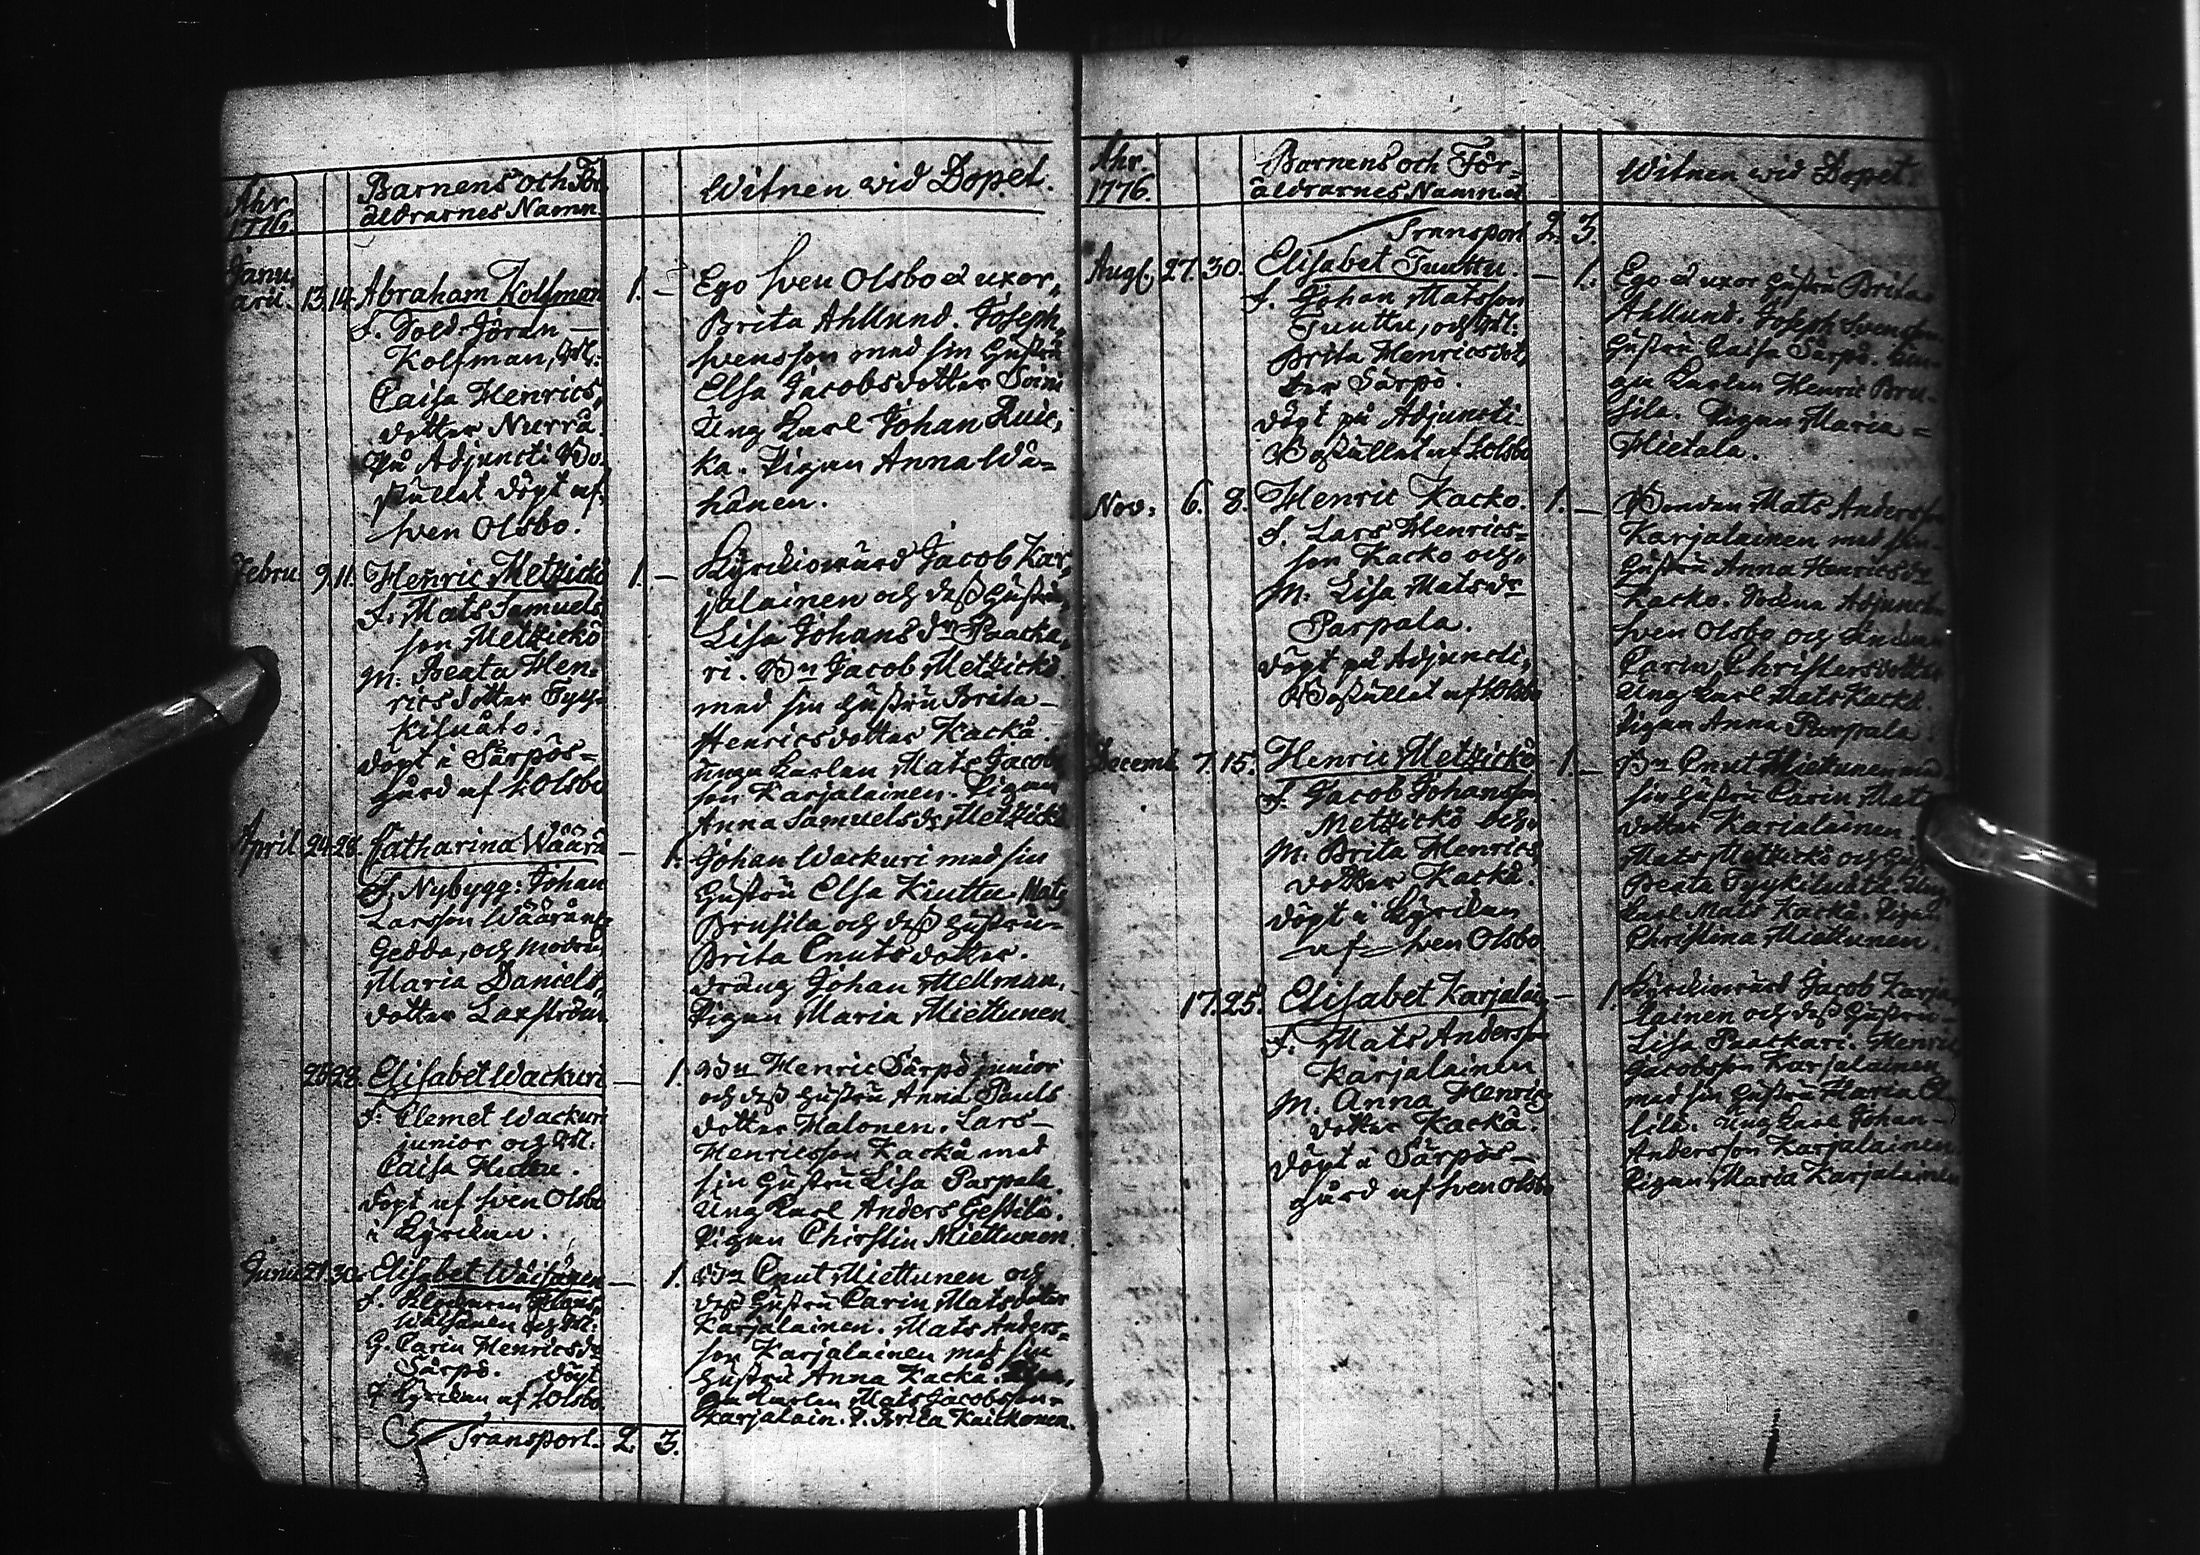 Ahr
1776.
Barnens och För-
äldrarnes Namn
Witnen wid Dopet.
Janu-
arii. 13. 14. Abraham Kolfman 1. –
F. Sold. Jöran
Kolfman, M.
Caisa Henrics,
dotter Nurra
På Adjuncti Bo-
stället döpt af
Sven Olsbo.
Ego Sven Olsbo et uxor,
Brita Ahllund. Joseph
Svensson med sin hustru
Elsa Jacobsdotter Soini
Ung karl Johan Ruic,
ka. Pigan Anna Wä=
hänen.
Febru. 9. 11. Henric Metzickö 1. –
F. Mats Samuels
son Metzickö
M. Beata Hen-
ricsdotter Tyy-
kiluåto.
döpt i Särpös=
gård af S. Olsbo
Kyrckiowärd Jacob Kar,
jalainen och dess hustru
Lisa Johans dr Paacka,
ri. Bn Jacob Metzickö
med sin hustru Brita
Henricsdotter Kackå.
unga karlen Mats Jacob
son Karjalainen. Pigan
Anna Samuelsdr Metzickö
April 24. 28. Catharina Wäärä – 1.
F. Nybygg: Johan
Larsson Wäärä
Gedda, och modren
Maria Daniels,
dotter Laxström
Johan Wackuri med sin
hustru Elsa Kiuttu. Mats
Brusila och dess hustru
Brita Cnutsdotter.
dräng Johan Mellman.
Pigan Maria Miettunen
28. Elisabet Wackuri – 1.
F. Clemet Wackuri
junior och M.
Caisa
döpt af Sven Olsbo
i Kyrckan.
Bn Henric Särpö junior
och dess hustru Anna Pauls
dotter Halonen. Lars
Henricsson Kackå med
sin hustru Lisa Parpala.
Ung karl Anders
Pigan Chirstin Miettunen.
Junii 30. Elisabet Wäisänen – 1.
F.
Wäisänen och M.
Carin Henricsdr
Särpö. döpt
i Kyrckan af S. Olsbo
Bn Cnut Miettunen och
dess hustru Carin Matsdotter
Karjalainen. Mats Anders=
son Karjalainen med sin
hustru Anna Kackå.
karlen Mats Jacobsson
Karjalain. P. Brita Kaikkonen.
Transport. 2. 3.
Ahr.
1776.
Barnens och För=
äldrarnes Namn
Witnen wid Dopet.
Transport 2. 3.
Aug. 27. 30. Elisabet Tuuttu. – 1.
F. Johan Matsson
Tuuttu, och M.
Brita Henricsdot
ter Särpö.
döpt på Adjuncti
Bostället af S. Olsbo
Ego et uxor hustru Brita
Ahllund. Joseph Svensson
hustru Caisa Särpö. Un-
ga karlen Henric Bru-
sila. Pigan Maria
Mietala.
Nov. 6. 8. Henric Kacko. 1. –
F. Lars Henrics=
son Kacko och
M. Lisa Matsdr
Parpala.
döpt på Adjuncti,
Bostället af S. Olsbo
Bonden Mats Andersson
Karjalainen med sin
hustru Anna Henricsdr
Kacko. Adjuncten
Sven Olsbo och
Carin Christersdotter
Ung karl Mats Kackå.
Pigan Anna Parpala.
Decemb. 7. 15. Henric Metzickö 1. –
F. Jacob Johansson
Metzickö och
M. Brita Henrics
dotter Kackå.
döpt i Kyrckan
af Sven Olsbo
Bn Cnut Miettunen med
sin hustru Carin Mats
dotter Karjalainen.
Mats Metzickö och hu
Beata Tyykiluåto. Ung
karl Mats Kackå. Piga
Christina Miettunen.
17. 25. Elisabet Karjalai, – 1
F. Mats Andersson
Karjalainen
M. Anna Henrics
dotter Kackå.
döpt i Särpös
gård af Sven Olsbo
Kyrckiowärd Jacob Karja
lainen och dess hustru
Lisa Paackari. Henric
Jacobsson Karjalainen
med sin hustru Maria
Ung karl Johan
Andersson Karjalainen
Pigan Maria Karjalainen